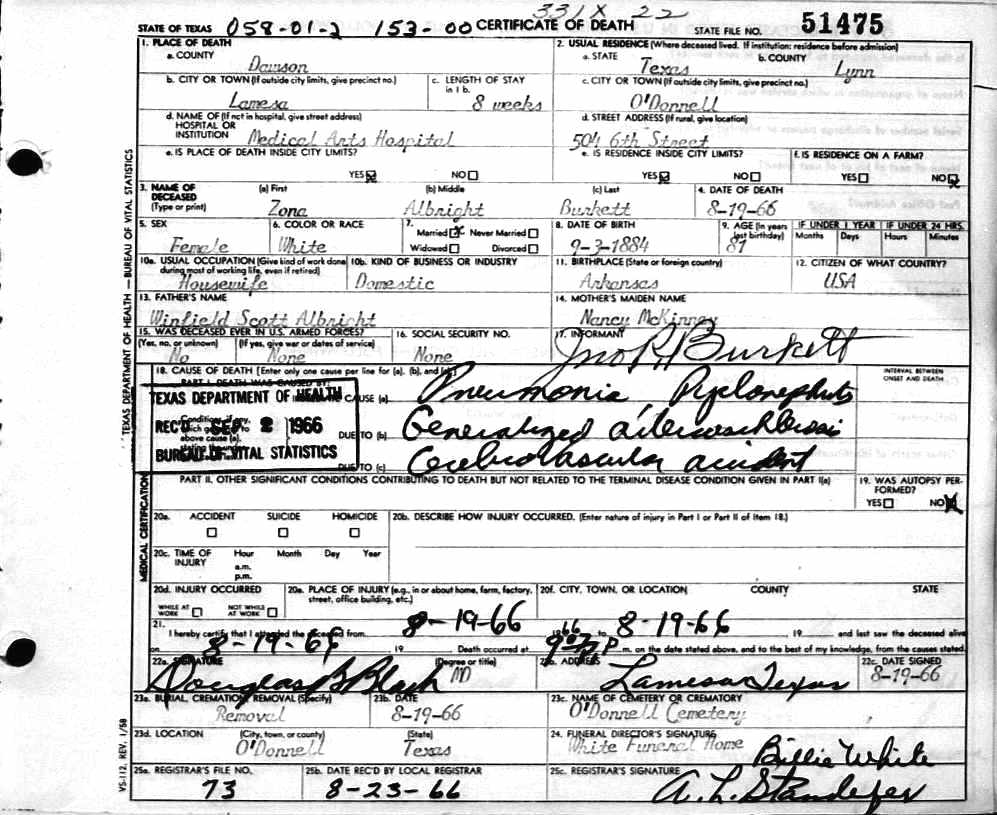 331X 22
STATE OF TEXAS 059-01-2 153-00 CERTIFICATE OF DEATH STATE FILE NO. 51475
1. PLACE OF DEATH
a. COUNTY Dawson
2. USUAL RESIDENCE (Where deceased lived. If institution: residence before admission)
a. STATE Texas b. COUNTY Lynn
b. CITY OR TOWN (If outside city limits, give precinct no.) Lamesa
c. LENGTH OF STAY in 1 b. 8 weeks
c. CITY OR TOWN (If outside city limits, give precinct no.) O'Donnell
d. NAME OF (If not in hospital, give street address) HOSPITAL OR INSTITUTION Medical Arts Hospital
d. STREET ADDRESS (If rural, give location) 504 6th Street
e. IS PLACE OF DEATH INSIDE CITY LIMITS? YES☒ NO☐
e. IS RESIDENCE INSIDE CITY LIMITS? YES☒ NO☐
f. IS RESIDENCE ON A FARM? YES☐ NO☒
3. NAME OF DECEASED (Type or print) (a) First Zona (b) Middle Albright (c) Last Burkett
4. DATE OF DEATH 8-19-66
5. SEX Female
6. COLOR OR RACE White
7. Married☒ Never Married☐ Widowed☐ Divorced☐
8. DATE OF BIRTH 9-3-1884
9. AGE (In years last birthday) 81
IF UNDER 1 YEAR Months Days
IF UNDER 24 HRS. Hours Minutes
10a. USUAL OCCUPATION (Give kind of work done during most of working life, even if retired) Housewife
10b. KIND OF BUSINESS OR INDUSTRY Domestic
11. BIRTHPLACE (State or foreign country) Arkansas
12. CITIZEN OF WHAT COUNTRY? USA
13. FATHER'S NAME Winfield Scott Albright
14. MOTHER'S MAIDEN NAME Nancy McKinney
15. WAS DECEASED EVER IN U.S. ARMED FORCES? (Yes, no, or unknown) No (If yes, give war or dates of service) None
16. SOCIAL SECURITY NO. None
17. INFORMANT Burkett
18. CAUSE OF DEATH [Enter only one cause per line for (a), (b), and (c)]
INTERVAL BETWEEN ONSET AND DEATH
PART I. DEATH WAS CAUSED BY:
CAUSE (a) Pneumonia,
DUE TO (b) Generalized
DUE TO (c) Cerebrovascular accident
TEXAS DEPARTMENT OF HEALTH
REC'D SEP 2 1966
BUREAU OF VITAL STATISTICS
PART II. OTHER SIGNIFICANT CONDITIONS CONTRIBUTING TO DEATH BUT NOT RELATED TO THE TERMINAL DISEASE CONDITION GIVEN IN PART I(a)
19. WAS AUTOPSY PERFORMED? YES☐ NO☒
20a. ACCIDENT ☐ SUICIDE ☐ HOMICIDE ☐
20b. DESCRIBE HOW INJURY OCCURRED. (Enter nature of injury in Part I or Part II of item 18.)
20c. TIME OF INJURY Hour a.m. p.m. Month Day Year
20d. INJURY OCCURRED WHILE AT WORK ☐ NOT WHILE AT WORK ☐
20e. PLACE OF INJURY (e.g., in or about home, farm, factory, street, office building, etc.)
20f. CITY, TOWN, OR LOCATION COUNTY STATE
21. I hereby certify that I attended the deceased from 8-19-66 to 8-19-66 19 and last saw the deceased alive
on 8-19-66 19 Death occurred at P m. on the date stated above, and to the best of my knowledge, from the causes stated.
22a. SIGNATURE (Degree or title) Douglas B Black MD
22b. ADDRESS Lamesa Texas
22c. DATE SIGNED 8-19-66
23a. BURIAL, CREMATION, REMOVAL (Specify) Removal
23b. DATE 8-19-66
23c. NAME OF CEMETERY OR CREMATORY O'Donnell Cemetery
23d. LOCATION (City, town, or county) O'Donnell (State) Texas
24. FUNERAL DIRECTOR'S SIGNATURE White Funeral Home Billie White
25a. REGISTRAR'S FILE NO. 73
25b. DATE REC'D BY LOCAL REGISTRAR 8-23-66
25c. REGISTRAR'S SIGNATURE A. L. Standefer
TEXAS DEPARTMENT OF HEALTH — BUREAU OF VITAL STATISTICS
MEDICAL CERTIFICATION
VS-112, REV. 1/58